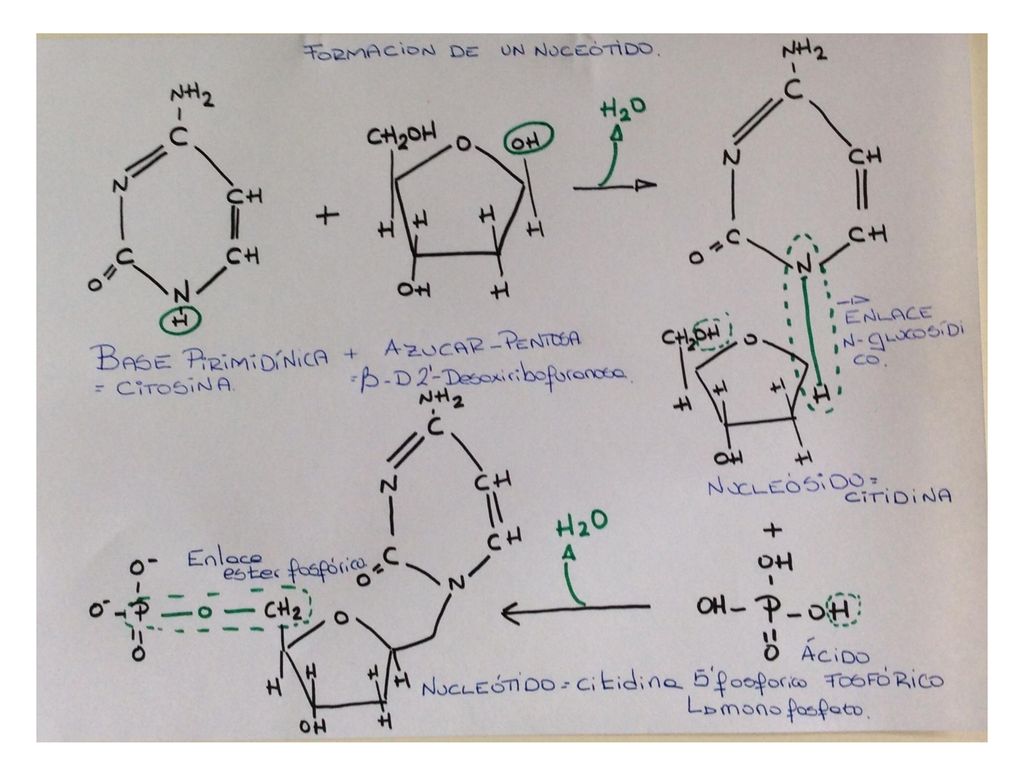 FORMACION DE UN NUCEÓTIDO.
NH2
C
N
CH
C
CH
O
N
H
+
CH2OH
O
OH
H
H
H
H
OH
H
H2O
NH2
C
N
CH
C
CH
O
N
CH2OH
O
H
H
H
H
OH
H
ENLACE
N-GLUCOSÍDI
CO.
BASE PIRIMIDÍNICA + AZUCAR-PENTOSA
= CITOSINA. =β-D 2'-Desoxiribofuranosa.
NUCLEÓSIDO=
CITIDINA
+
OH
OH-P-OH
O
ÁCIDO
FOSFÓRICO
H2O
NH2
C
N
CH
C
CH
O
N
Enlace
ester fosfórico
O-
O-P-O-CH2
O
O
H
H
H
H
OH
H
NUCLEÓTIDO= Citidina 5'fosforico
monofosfato.